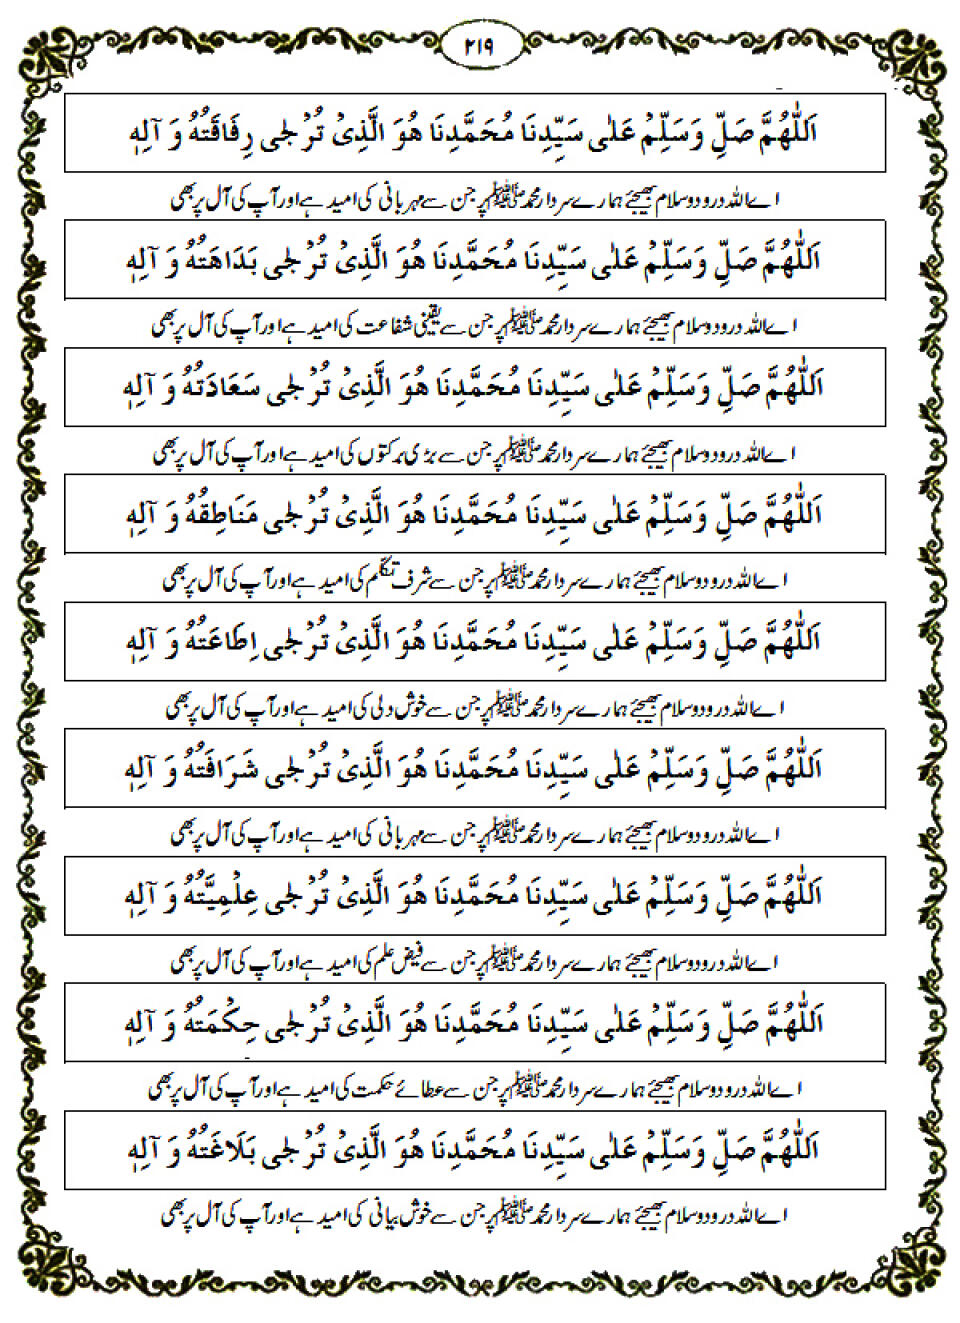 ۲۱۹
اَللّٰهُمَّ صَلِّ وَسَلِّمْ عَلٰى سَيِّدِنَا مُحَمَّدِنَا هُوَ الَّذِىْ تُرْجٰى رِفَاقَتُهٗ وَ آلِهٖ
اے اللہ درود و سلام بھیجئے ہمارے سردار محمد ﷺ پر جن سے مہربانی کی امید ہے اور آپ کی آل پر بھی
اَللّٰهُمَّ صَلِّ وَسَلِّمْ عَلٰى سَيِّدِنَا مُحَمَّدِنَا هُوَ الَّذِىْ تُرْجٰى بَدَاهَتُهٗ وَ آلِهٖ
اے اللہ درود و سلام بھیجئے ہمارے سردار محمد ﷺ پر جن سے یقینی شفاعت کی امید ہے اور آپ کی آل پر بھی
اَللّٰهُمَّ صَلِّ وَسَلِّمْ عَلٰى سَيِّدِنَا مُحَمَّدِنَا هُوَ الَّذِىْ تُرْجٰى سَعَادَتُهٗ وَ آلِهٖ
اے اللہ درود و سلام بھیجئے ہمارے سردار محمد ﷺ پر جن سے بڑی برکتوں کی امید ہے اور آپ کی آل پر بھی
اَللّٰهُمَّ صَلِّ وَسَلِّمْ عَلٰى سَيِّدِنَا مُحَمَّدِنَا هُوَ الَّذِىْ تُرْجٰى مَنَاطِقُهٗ وَ آلِهٖ
اے اللہ درود و سلام بھیجئے ہمارے سردار محمد ﷺ پر جن سے شرف تکلّم کی امید ہے اور آپ کی آل پر بھی
اَللّٰهُمَّ صَلِّ وَسَلِّمْ عَلٰى سَيِّدِنَا مُحَمَّدِنَا هُوَ الَّذِىْ تُرْجٰى اِطَاعَتُهٗ وَ آلِهٖ
اے اللہ درود و سلام بھیجئے ہمارے سردار محمد ﷺ پر جن سے خوش دلی کی امید ہے اور آپ کی آل پر بھی
اَللّٰهُمَّ صَلِّ وَسَلِّمْ عَلٰى سَيِّدِنَا مُحَمَّدِنَا هُوَ الَّذِىْ تُرْجٰى شَرَافَتُهٗ وَ آلِهٖ
اے اللہ درود و سلام بھیجئے ہمارے سردار محمد ﷺ پر جن سے مہربانی کی امید ہے اور آپ کی آل پر بھی
اَللّٰهُمَّ صَلِّ وَسَلِّمْ عَلٰى سَيِّدِنَا مُحَمَّدِنَا هُوَ الَّذِىْ تُرْجٰى عِلْمِيَّتُهٗ وَ آلِهٖ
اے اللہ درود و سلام بھیجئے ہمارے سردار محمد ﷺ پر جن سے فیض علم کی امید ہے اور آپ کی آل پر بھی
اَللّٰهُمَّ صَلِّ وَسَلِّمْ عَلٰى سَيِّدِنَا مُحَمَّدِنَا هُوَ الَّذِىْ تُرْجٰى حِكْمَتُهٗ وَ آلِهٖ
اے اللہ درود و سلام بھیجئے ہمارے سردار محمد ﷺ پر جن سے عطائے حکمت کی امید ہے اور آپ کی آل پر بھی
اَللّٰهُمَّ صَلِّ وَسَلِّمْ عَلٰى سَيِّدِنَا مُحَمَّدِنَا هُوَ الَّذِىْ تُرْجٰى بَلَاغَتُهٗ وَ آلِهٖ
اے اللہ درود و سلام بھیجئے ہمارے سردار محمد ﷺ پر جن سے خوش بیانی کی امید ہے اور آپ کی آل پر بھی